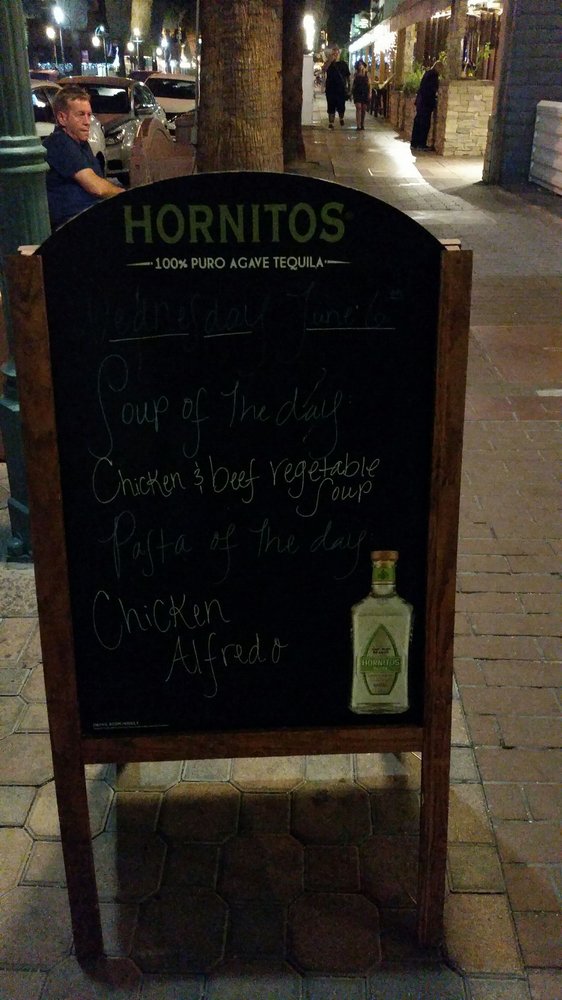 HORNITOS®
100% PURO AGAVE TEQUILA
Wednesday June 6th
Soup of The day:
Chicken & beef vegetable
Soup
Pasta of The day:
Chicken
Alfredo
HORNITOS